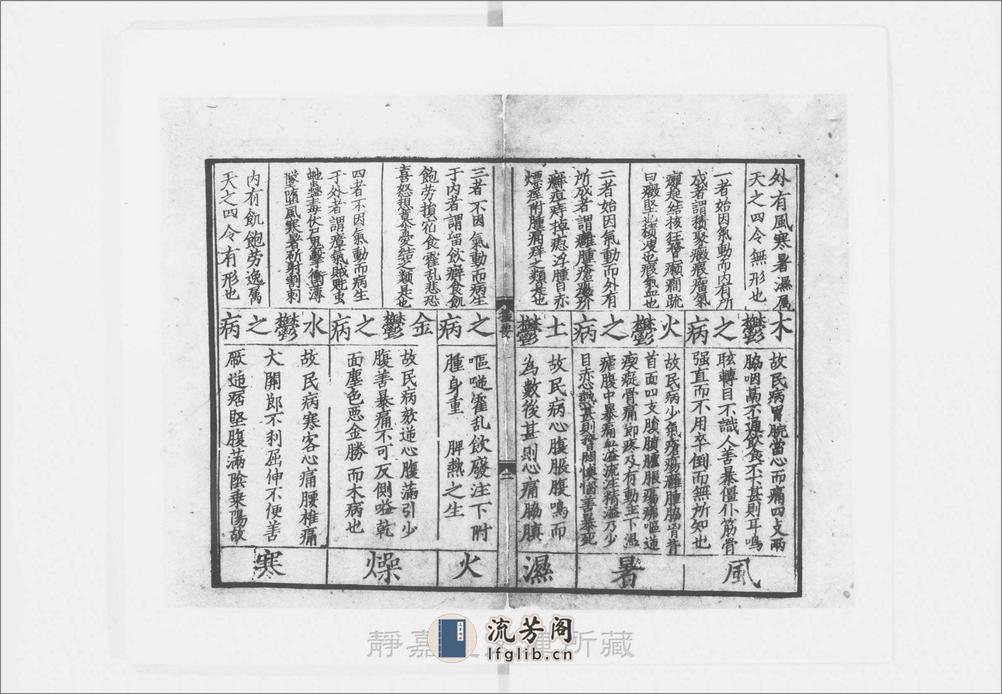 外有風寒暑濕屬
天之四令無形也
一者始因氣動而内有所
成者謂積聚癥瘕瘤氣
癭起結核狂瞀癲癇疏
曰癥堅也瘕氣血也
二者始因氣動而外有
所成者謂癰腫瘡瘍疥
癩疽痔掉瘛浮腫目赤
熛疹胕腫痛痒之類是也
三者不因氣動而病生
于内者謂留飲癖食飢
飽勞損宿食霍乱悲恐
喜怒想慕憂結之類是也
四者不因氣動而病生
于外者謂瘴氣賊魅虫
蛇蠱毒伏尸鬼擊衝薄
墜墮風寒暑斫射割刺
内有飢飽勞逸属
天之四令有形也
木鬱之病
火鬱之病
土鬱
之病
金鬱之病
水鬱之病
故民病胃脘當心而痛四支兩
脇咽鬲不通飲食不下甚則耳鳴
眩轉目不識人善暴僵仆筋骨
强直而不用卒倒而無所知也
故民病少氣瘡瘍癰腫脇胷背
首面四支膹腫臚脹瘍疿嘔逆
瘈瘲骨痛節疼及有動注下温
瘧腹中暴痛血溢流注精溢乃少
目赤心熱甚則瞀悶懊憹善暴死
故民病心腹脹腹鳴而
為數後甚則心痛脇䐜
嘔噦霍乱飲發注下胕
腫身重 脾熱之生
故民病欬逆心腹滿引少
腹善暴痛不可反側嗌乾
面塵色悪金勝而木病也
故民病寒客心痛腰椎痛
大關節不利屈伸不便善
厥逆痞堅腹滿陰乗陽故
風
暑
濕
火
燥
寒
靜嘉 所藏
流芳阁
lfglib.cn